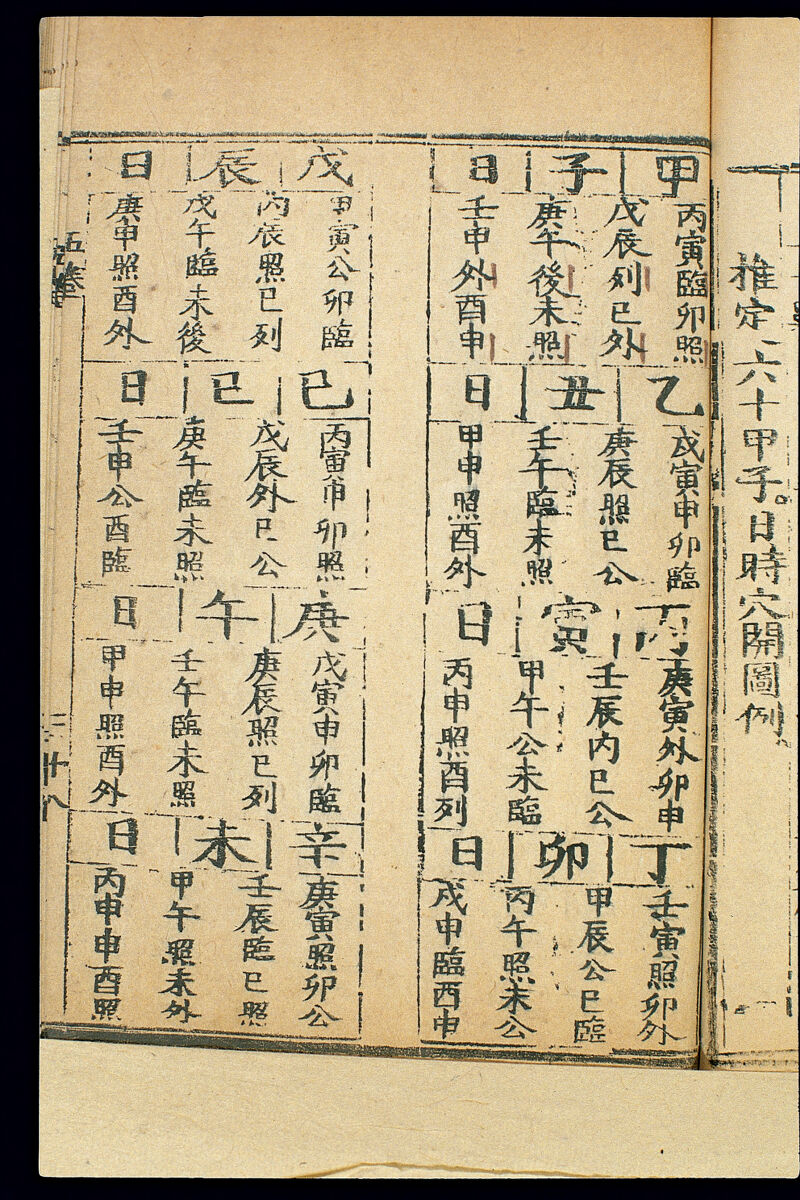 推定六十甲子日時穴開圖例
甲子日
丙寅臨卯照
戊辰列巳外
庚午後未照
壬申外酉申
乙丑日
戊寅申卯臨
庚辰照巳公
壬午臨未照
甲申照酉外
丙寅日
庚寅外卯申
壬辰內巳公
甲午公未臨
丙申照酉列
丁卯日
壬寅照卯外
甲辰公巳臨
丙午照未公
戊申臨酉申
戊辰日
甲寅公卯臨
丙辰照巳列
戊午臨未後
庚申照酉外
己巳日
丙寅申卯照
戊辰外巳公
庚午臨未照
壬申公酉臨
庚午日
戊寅申卯臨
庚辰照巳列
壬午臨未照
甲申照酉外
辛未日
庚寅照卯公
壬辰臨巳照
甲午照未外
丙申申酉照
五卷
廿八